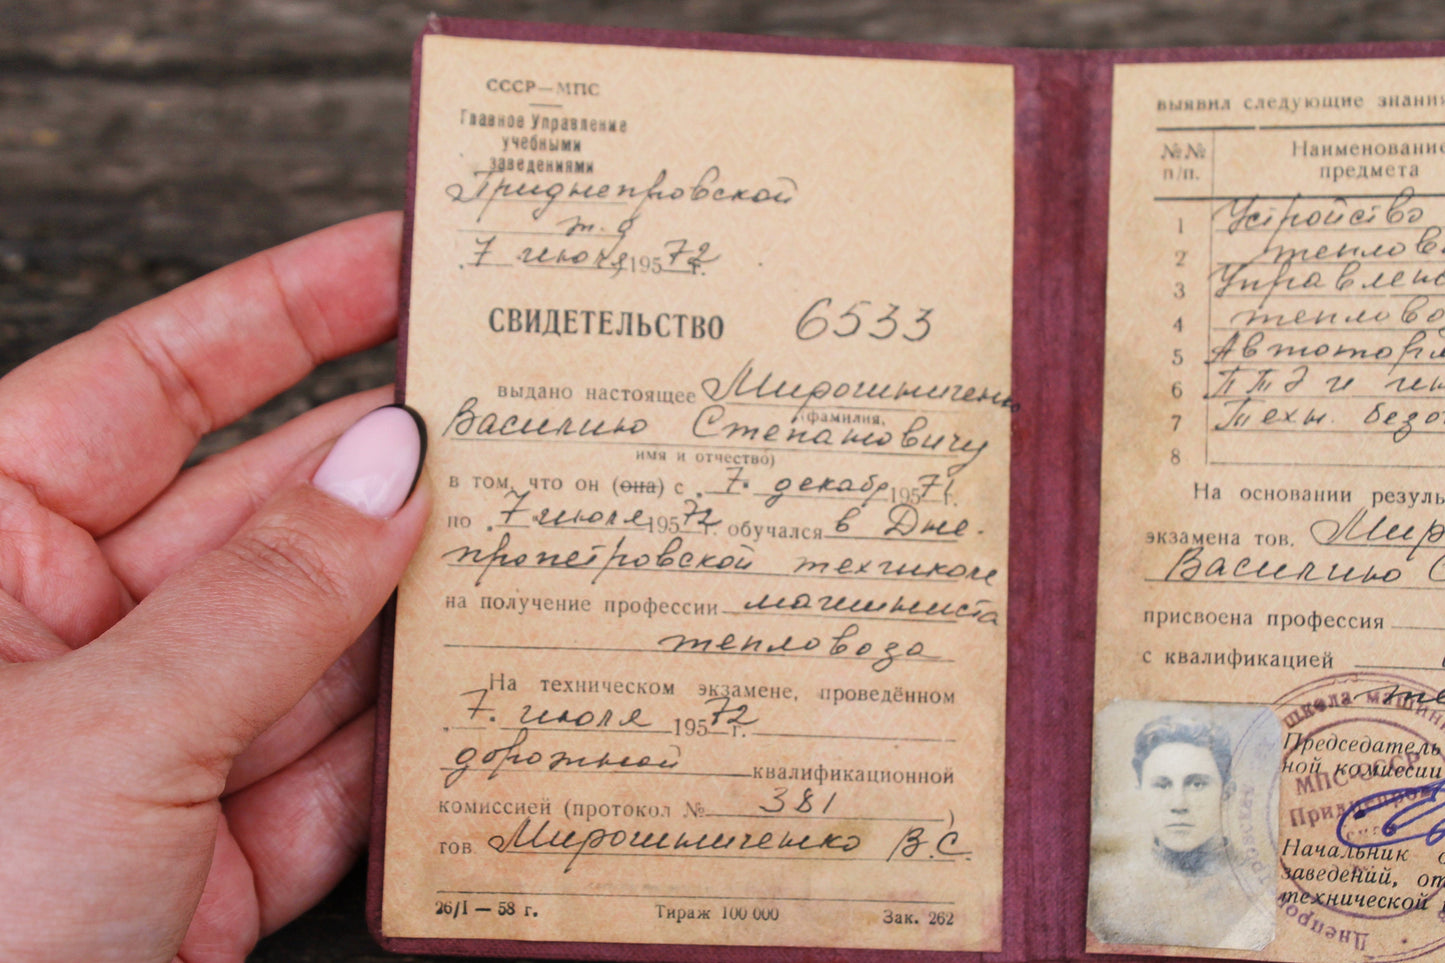 СССР—МПС
Главное Управление
учебными
заведениями
Приднепровской
ж. д
7 июля 1957 72 г.
СВИДЕТЕЛЬСТВО 6533
выдано настоящее Мирошниченко
(фамилия,
Василию Степановичу
имя и отчество)
в том, что он (она) с 7. декабр 195 71 г.
по 7 июля 195 72 г. обучался в Дне-
пропетровской техшколе
на получение профессии машиниста
тепловоза
На техническом экзамене, проведённом
7. июля 195 72 г.
дорожной квалификационной
комиссией (протокол № 381 )
тов Мирошниченко В.С.
26/I — 58 г. Тираж 100 000 Зак. 262
выявил следующие знания
№№ Наименование
п/п. предмета
1 Устройство
2 теплов
3 Управлени
4 теплово
5 Автоторм
6 ПТЭ и ин
7 Техн. безо
8
На основании резуль
экзамена тов. Мир
Василию С
присвоена профессия
с квалификацией
Председатель
ной комиссии
Начальник
заведений, от
технической
школа машин
МПС-СССР
Приднепров
Днепропетровская